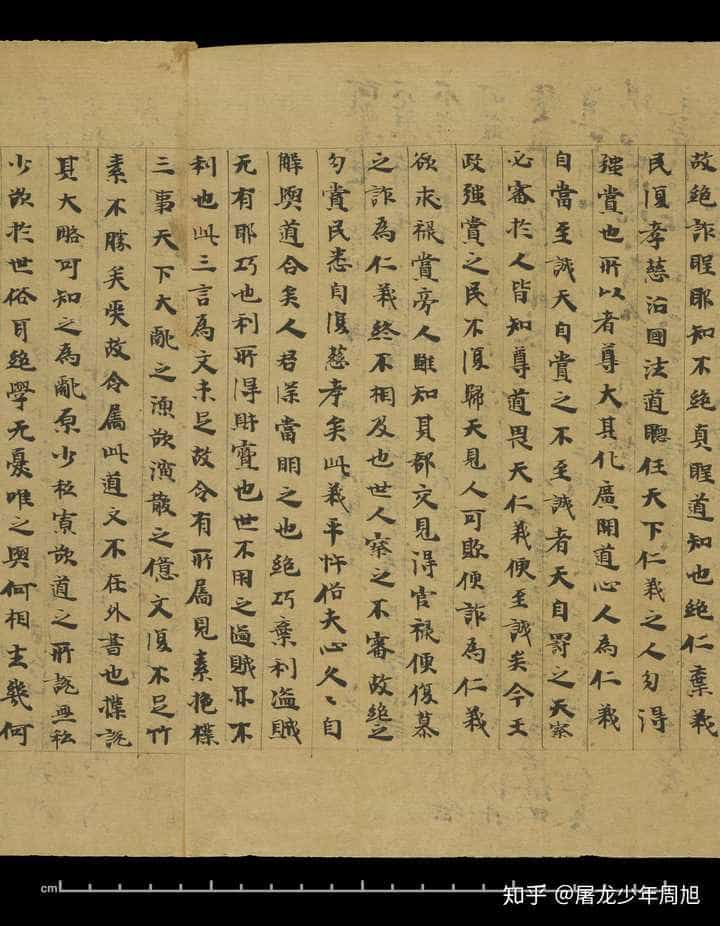 故絶詐聖耶知不絶真聖道知也絶仁棄義
民復孝慈治國法道聽任天下仁義之人勿得
強賞也所以者尊大其化廣開道心人為仁義
自當至誠天自賞之不至誠者天自罰之天察
必審於人皆知尊道畏天仁義便至誠矣今王
政強賞之民不復歸天見人可欺便詐為仁義
欲求禄賞旁人雖知其邪交見得官禄便復慕
之詐為仁義終不相及也世人察之不審故絶之
勿賞民悉自復慈孝矣此義平忤俗夫心久〻自
解與道合矣人君深當明之也絶巧棄利盜賊
无有耶巧也利所得財寶也世不用之盜賊亦不
利也此三言為文未足故令有所屬見素抱樸
三事天下大亂之源欲演散之億文復不足竹
素不勝矣故令屬此道文不在外書也揲説
其大略可知之為亂原少私寡欲道之所説無私
少欲於世俗耳絶學无憂唯之與何相去幾何
cm
知乎 @屠龙少年周旭